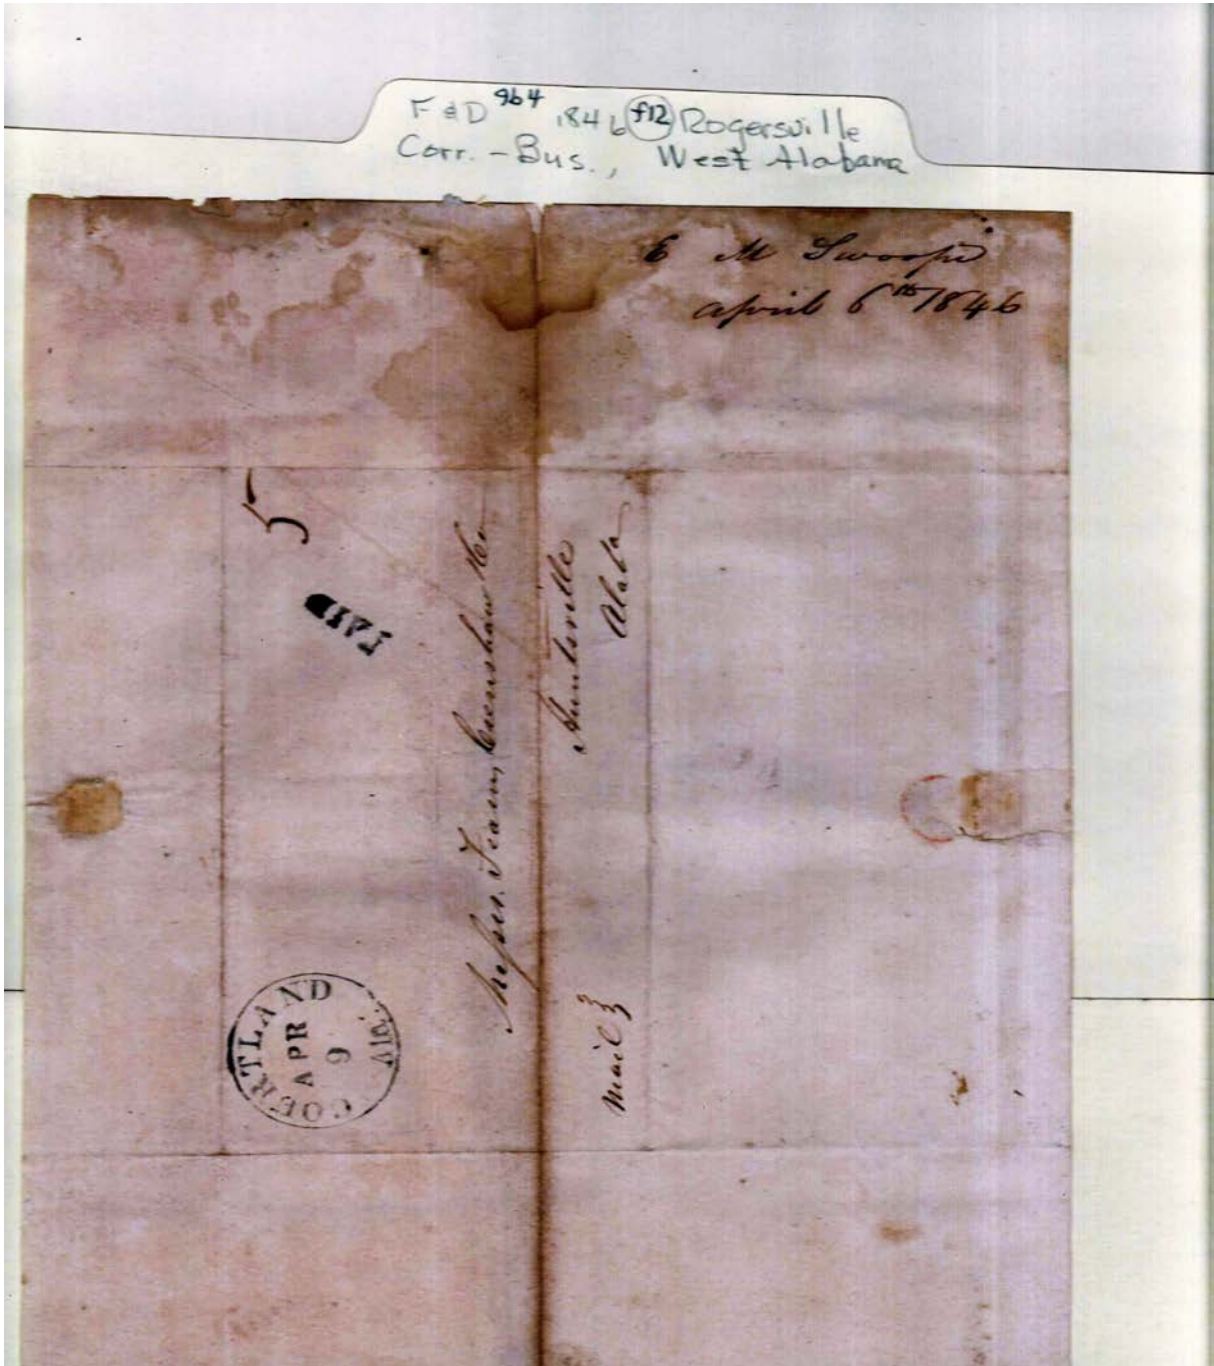 F & D 9b4 1846 f12 Rogersville
Corr. - Bus., West Alabama
E M Swoope
April 6th 1846
5
PAID
Messrs. Fearn, Crenshaw & Co
Huntsville
Alaba
Mail
COURTLAND
APR
9
Ala.